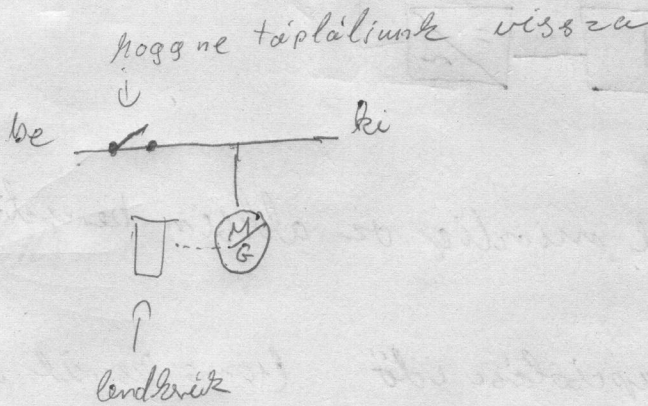 hogy ne tápláljunk vissza
be
ki
M
G
lendkerék